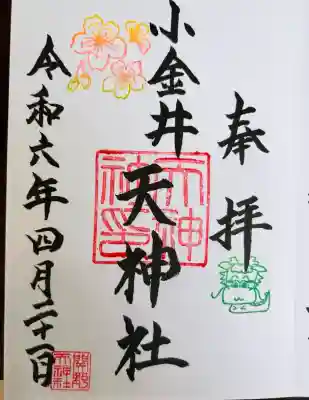 奉拝
小金井
天神社
令和六年四月二十一日
關野
天神社